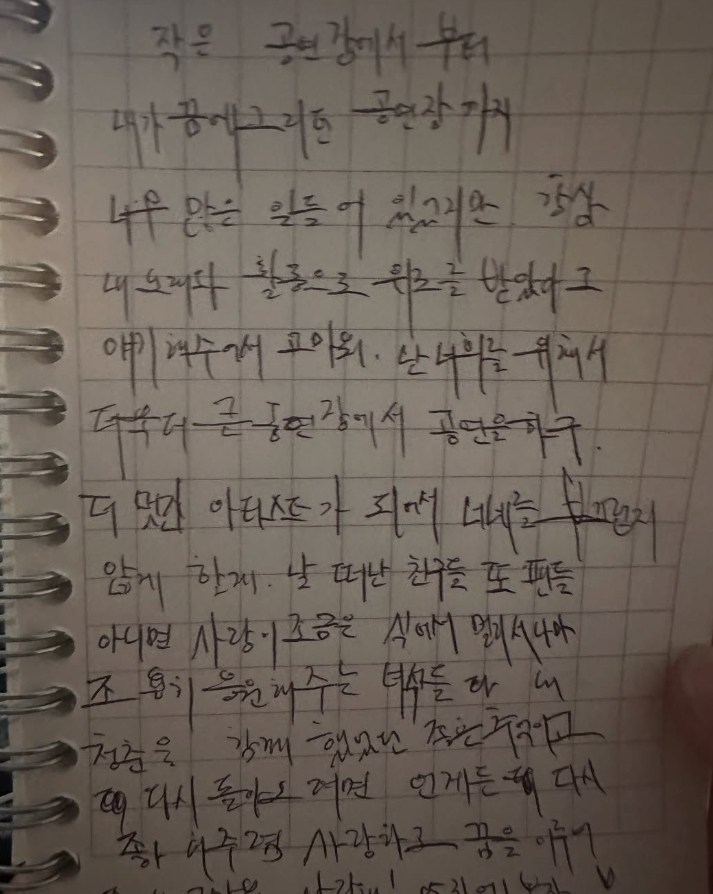 작은 공연장에서 부터
내가 꿈에 그리던 공연장 까지
너무 많은 일들이 있었지만 항상
내 노래와 활동으로 위로를 받았다고
얘기해주어서 고마워. 난 너희를 위해서
더욱 더 큰 공연장에서 공연을 하구.
더 멋진 아티스트가 되어서 너네를 부끄럽지
않게 할게. 날 떠난 친구들 또 팬들
아니면 사랑이 조금은 식어서 멀리서나마
조용히 응원해주는 녀석들 다 내
청춘을 함께 했었던 좋은 추억이고
다시 돌아오려면 언제든 다시
좋아해주고 사랑하고 꿈을 이루어